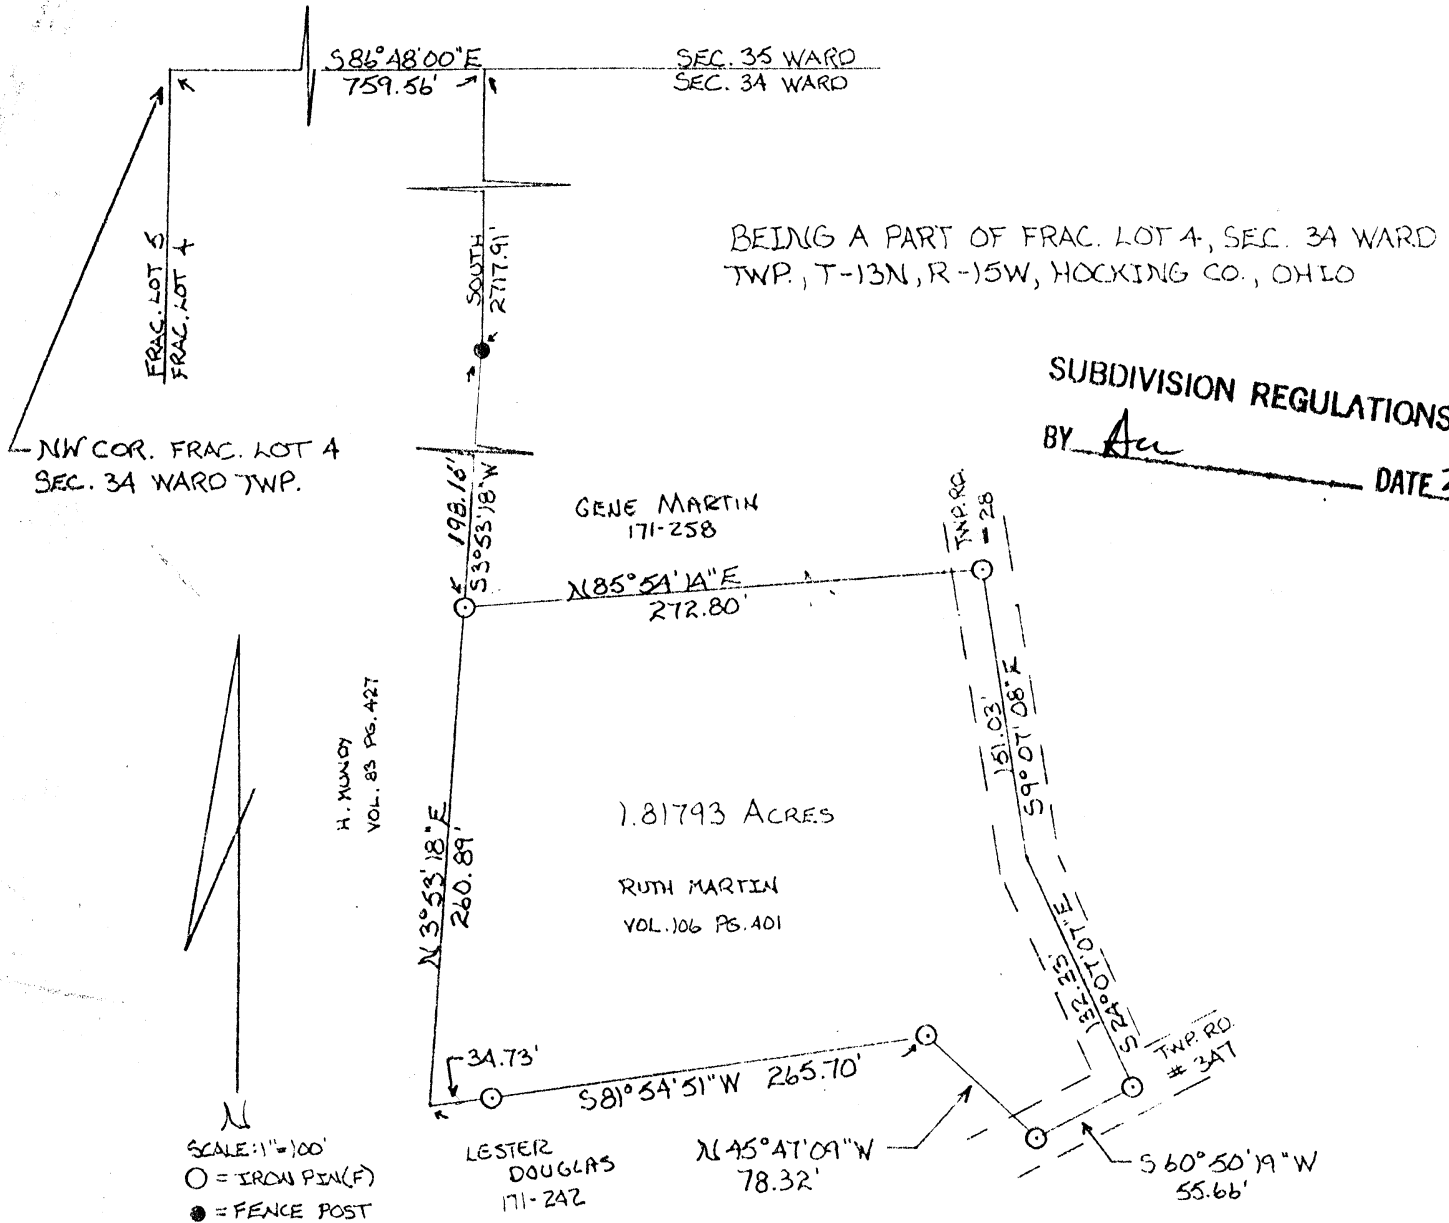 S86°48'00"E
759.56'
SEC. 35 WARD
SEC. 34 WARD
FRAC. LOT 5
FRAC. LOT 4
SOUTH
2717.91'
BEING A PART OF FRAC. LOT 4, SEC. 34 WARD
TWP., T-13N, R-15W, HOCKING CO., OHIO
SUBDIVISION REGULATIONS
BY
DATE 2
NW COR. FRAC. LOT 4
SEC. 34 WARD TWP.
198.16'
S3°53'18"W
GENE MARTIN
171-258
TWP. RD.
28
N85°54'14"E
272.80'
H. MUNDY
VOL. 83 PG. 427
151.03'
S9°07'08"E
1.81793 ACRES
RUTH MARTIN
VOL. 106 PG. 401
N3°53'18"E
260.89'
132.33'
S24°07'07"E
TWP. RD.
# 347
34.73'
S81°54'51"W 265.70'
N
SCALE: 1"=100'
O = IRON PIN(F)
● = FENCE POST
LESTER
DOUGLAS
171-242
N45°47'09"W
78.32'
S60°50'19"W
55.66'